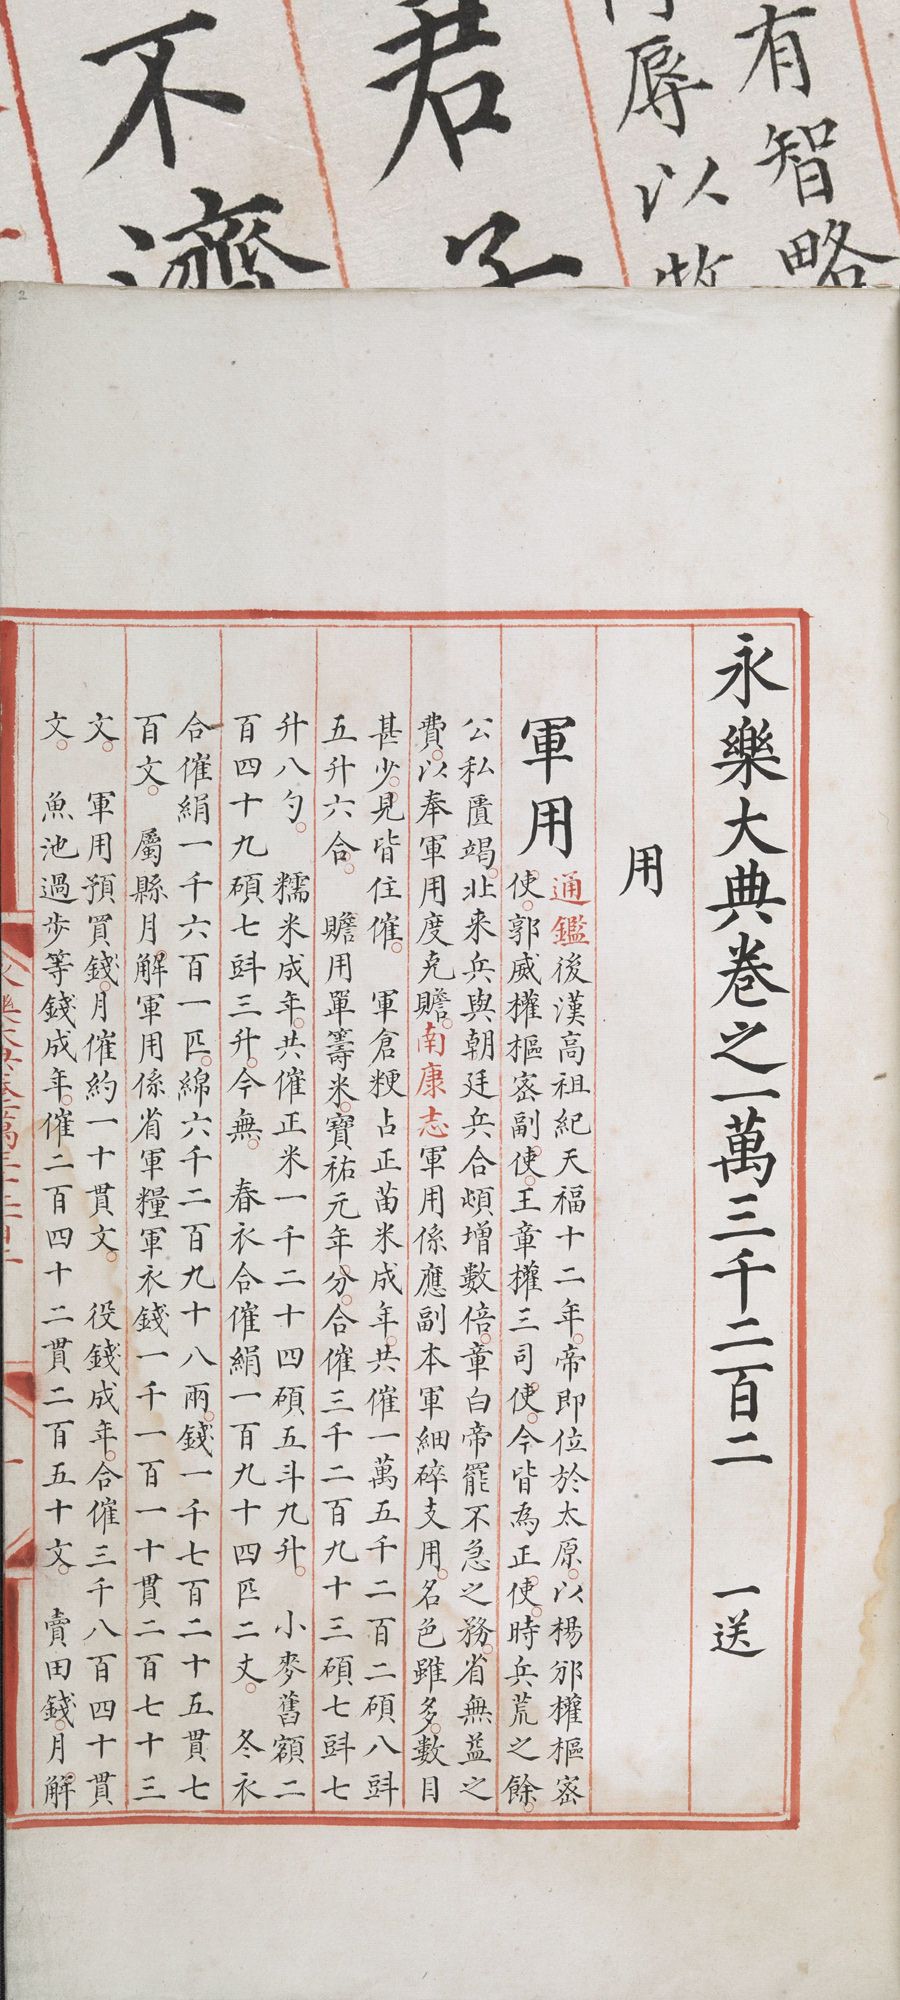 有智略
辱以
君子
不濟
永樂大典卷之一萬三千二百二 一送
用
軍用
通鑑後漢高祖紀天福十二年帝即位於太原以楊邠權樞密
使郭威權樞密副使王章權三司使今皆為正使時兵荒之餘
公私匱竭北来兵與朝廷兵合頓增數倍章白帝罷不急之務省無益之
費以奉軍用度克贍南康志軍用係應副本軍細碎支用名色雖多數目
甚少見皆住催 軍倉粳占正苗米成年共催一萬五千二百二碩八㪷
五升六合 贍用單籌米寶祐元年分合催三千二百九十三碩七㪷七
升八勺 糯米成年共催正米一千二十四碩五斗九升 小麥舊額二
百四十九碩七㪷三升今無 春衣合催絹一百九十四匹二丈 冬衣
合催絹一千六百一匹綿六千二百九十八兩錢一千七百二十五貫七
百文 屬縣月解軍用係省軍糧軍衣錢一千一百一十貫二百七十三
文 軍用預買錢月催約一十貫文 役錢成年合催三千八百四十貫
文 魚池過步等錢成年催二百四十二貫二百五十文 賣田錢月解